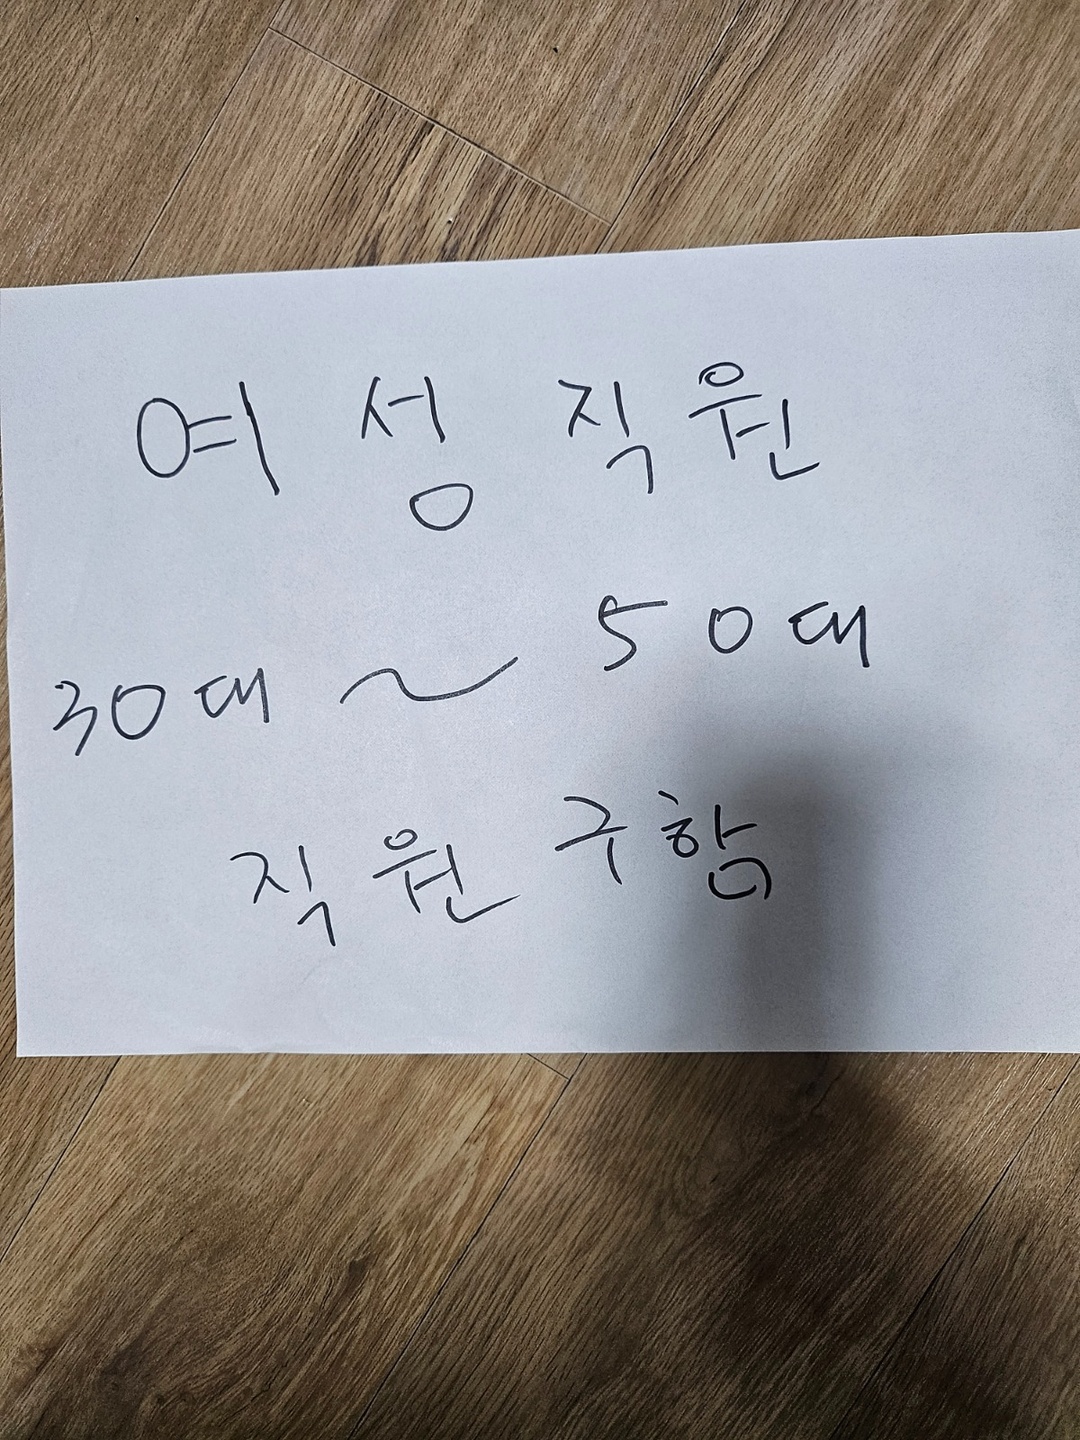 여성 직원
30대 ~ 50대
직원 구함